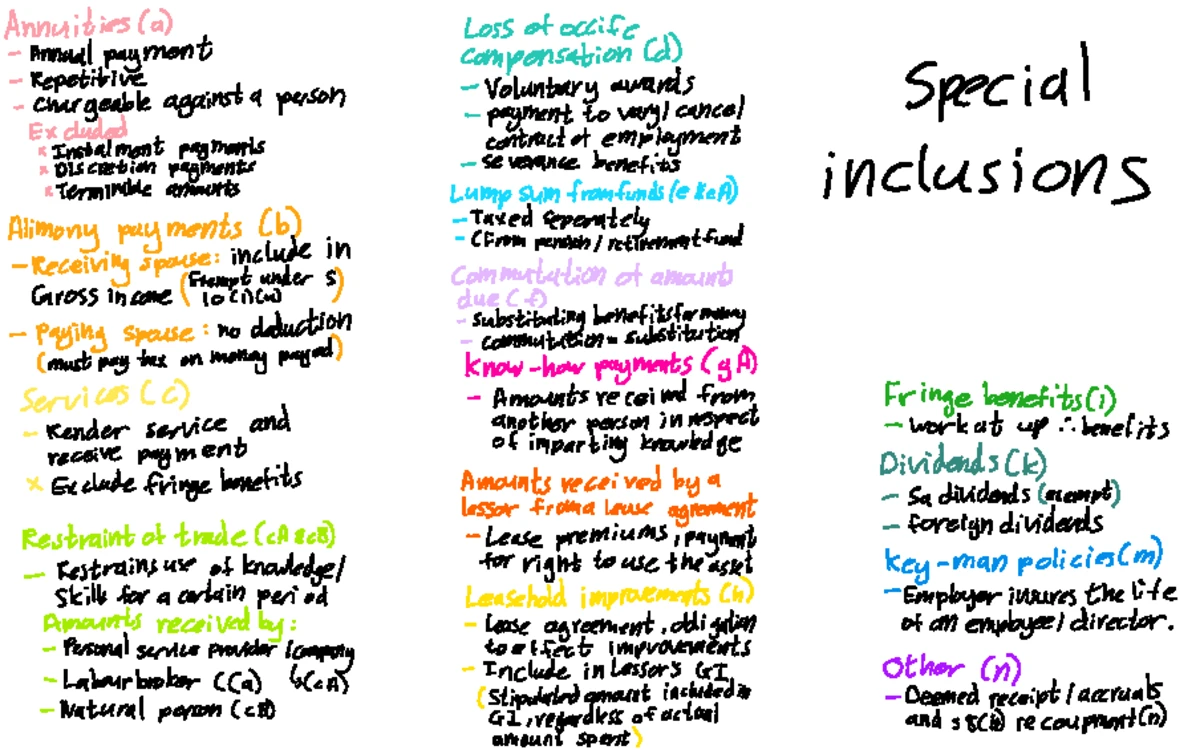 Annuities (a)
- Annual payment
- Repetitive
- Chargeable against a person
Excluded
x Instalment payments
x Discretion payments
x Terminable amounts
Alimony payments (b)
- Receiving spouse: include in
Gross income (Exempt under S
10(1)(u))
- Paying spouse: no deduction
(must pay tax on money payed)
Services (c)
- Render service and
receive payment
x Exclude fringe benefits
Restraint of trade (cA & cB)
- Restrains use of knowledge/
skill for a certain period
Amounts received by:
- Personal service provider /company
- Labour broker (Ca) ↳(cA)
- Natural person (cB)
Loss of occife
compensation (d)
- Voluntary awards
- payment to vary/ cancel
contract of employment
- severance benefits
Lump sum from funds (e & eA)
- Taxed seperately
- (From pension / retirement fund
Commutation of amounts
due (f)
- Substituting benefits for money
- commutation = substitution
Know-how payments (gA)
- Amounts received from
another person in respect
of imparting knowledge
Amounts received by a
lessor from a lease agreement
- Lease premiums, payment
for right to use the asset
Leasehold improvements (h)
- Lease agreement, obligation
to effect improvements
- Include in Lessor's GI
(Stipulated amount included in
GI, regardless of actual
amount spent)
Special
inclusions
Fringe benefits (i)
- work at up ∴ benefits
Dividends (k)
- Sa dividends (exempt)
- foreign dividends
Key-man policies (m)
- Employer insures the life
of an employee/ director.
Other (n)
- Deemed receipt / accruals
and s 8(4) recoupment (n)